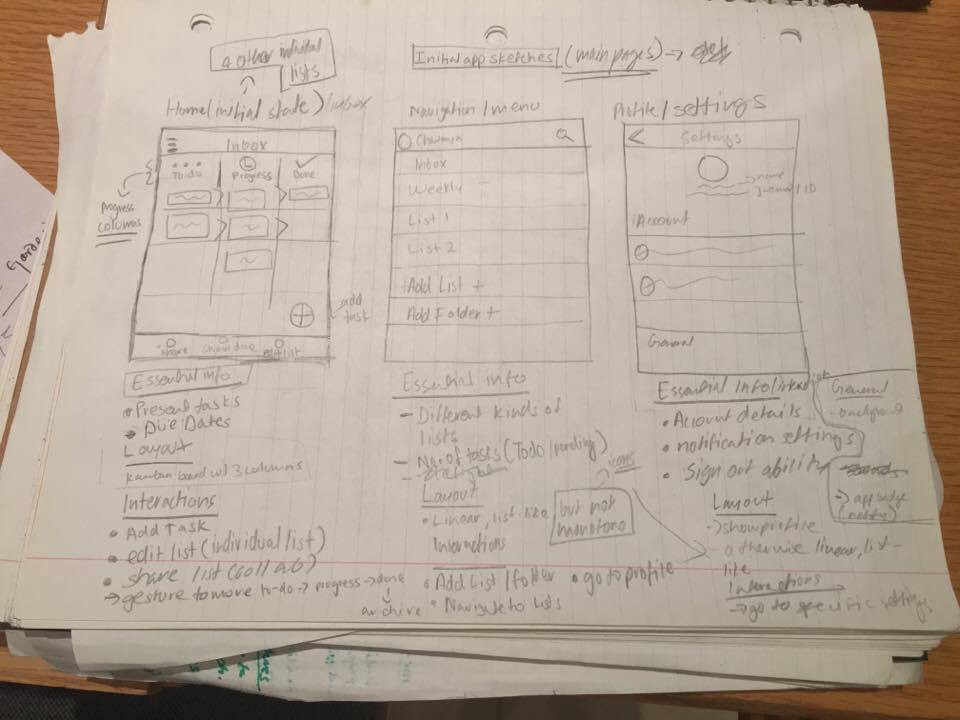 4 other individual
lists
Initial app sketches (main pages) →
Home (initial state) / inbox
Inbox
Todo
Progress
Done
Progress
columns
add
task
share
show done
edit list
Essential info
• Present tasks
• Due Dates
Layout
Kanban board w/ 3 columns
Interactions
• Add Task
• edit list (individual list)
• share list (collab)
→ gesture to move to-do → progress → done
archive
Navigation / menu
Inbox
Weekly
List 1
List 2
+Add List +
Add Folder +
Essential info
- Different kinds of
lists
- No. of tasks (Todo/pending)
Layout
• Linear, list like
but not
monotono
icons
Interactions
• Add List / folder
• go to profile
• Navigate to Lists
Profile / settings
Settings
name
ID
Account
General
Essential Info
• Account details
• notification settings
• Sign out ability
General
→ app badge
(notifs)
Layout
→ show profile
- otherwise linear, list-
like
Interactions
→ go to specific settings